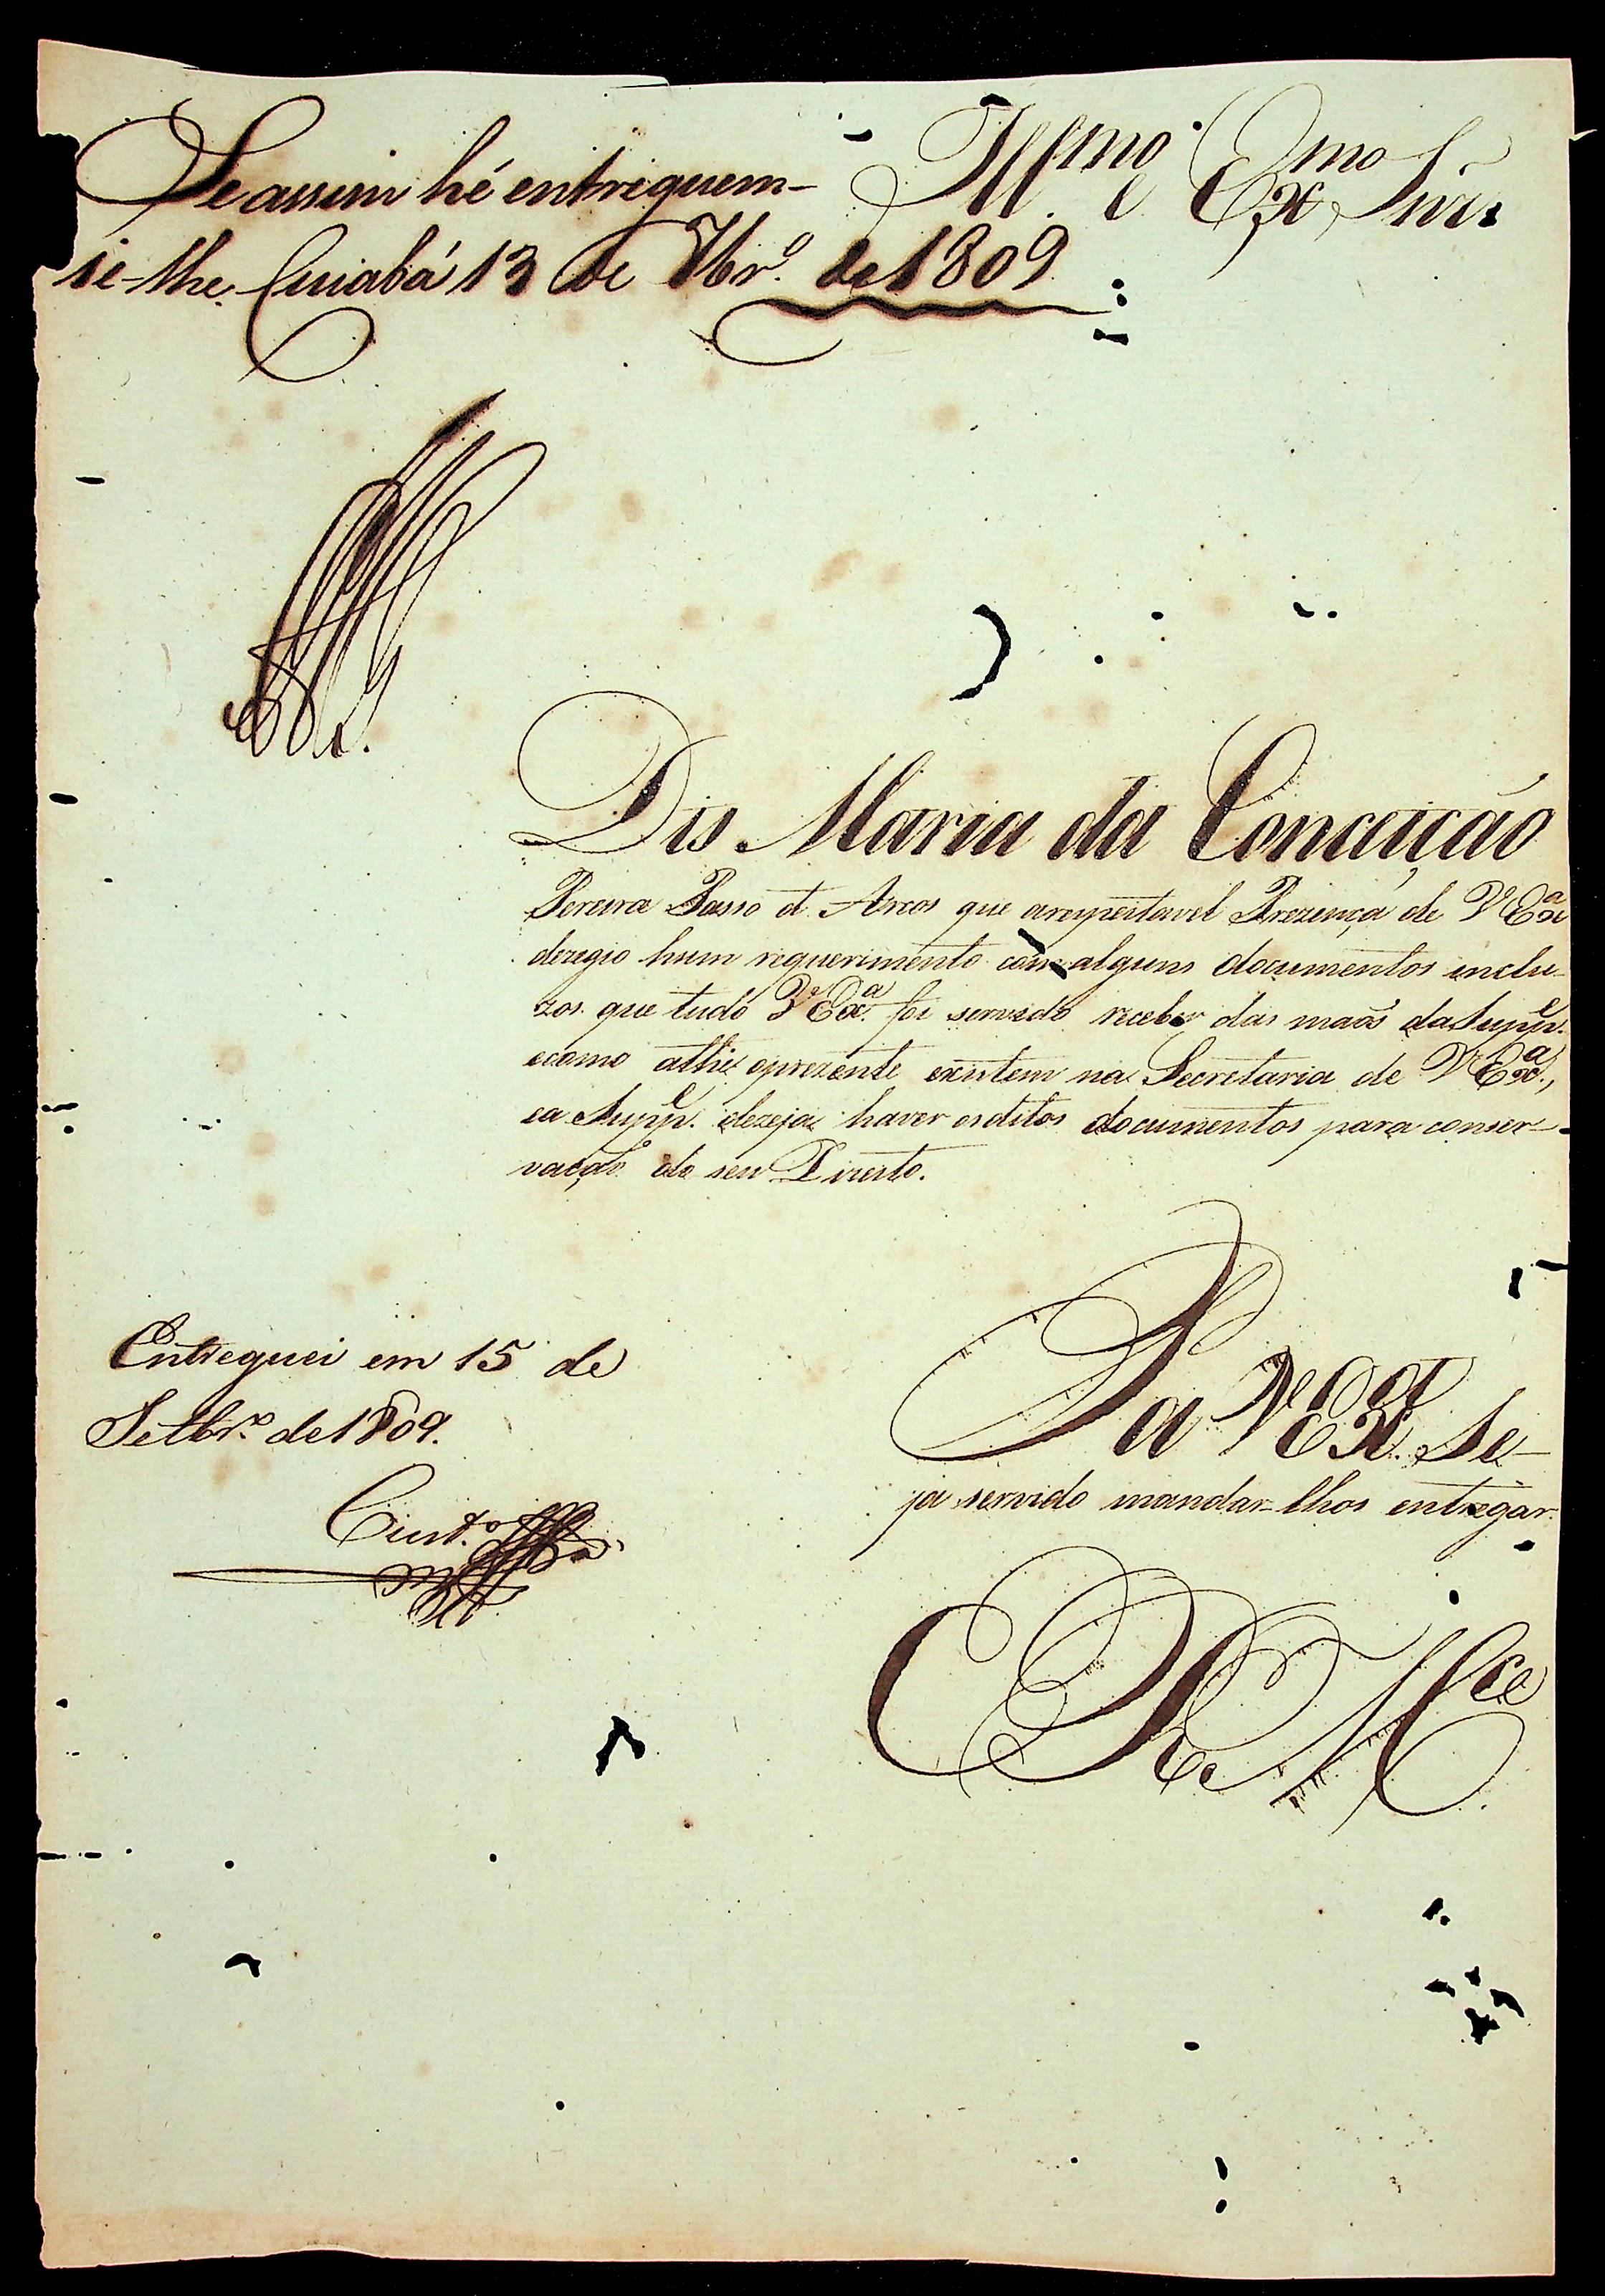 Se assim hé entreguem-
se-lhe. Cuiabá 13 de 7br.º de 1809
Illmo. e Exmo Snr.
Dis Maria da Conceição
Pereira Passo d'Arcos que arespeitavel Prezença de V Exª
deregio hum requerimento com alguns documentos inclu-
zos. que tudo V Exª. foi servido receber das maõs da Supp.e
ecomo athe oprezente existem na Secretaria de V Exª.,
ea Supp.e dezeja haver osditos documentos para conser-
vação do seu Direito.
Pa V Exª. Se-
ja servido mandar-lhos entregar.
E R Mce
Entreguei em 15 de
Setbr.º de 1809.